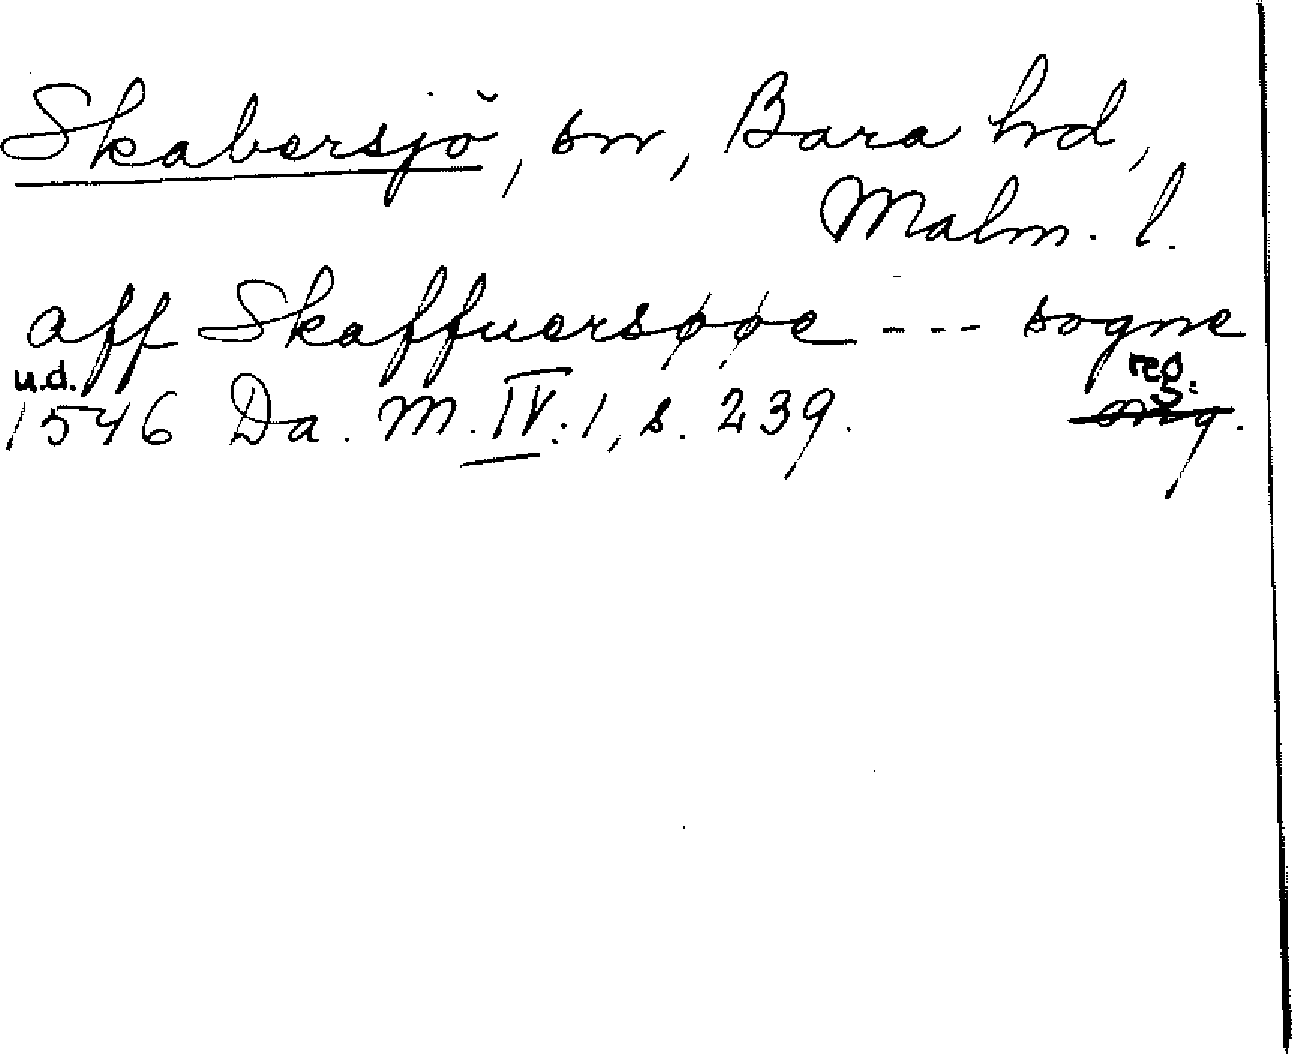 Skabersjö, sn, Bara hd,
Malm. l.
aff Skaffuersøøe --- sogne
u.d. reg.
1546 Da. M. IV:1, s. 239.